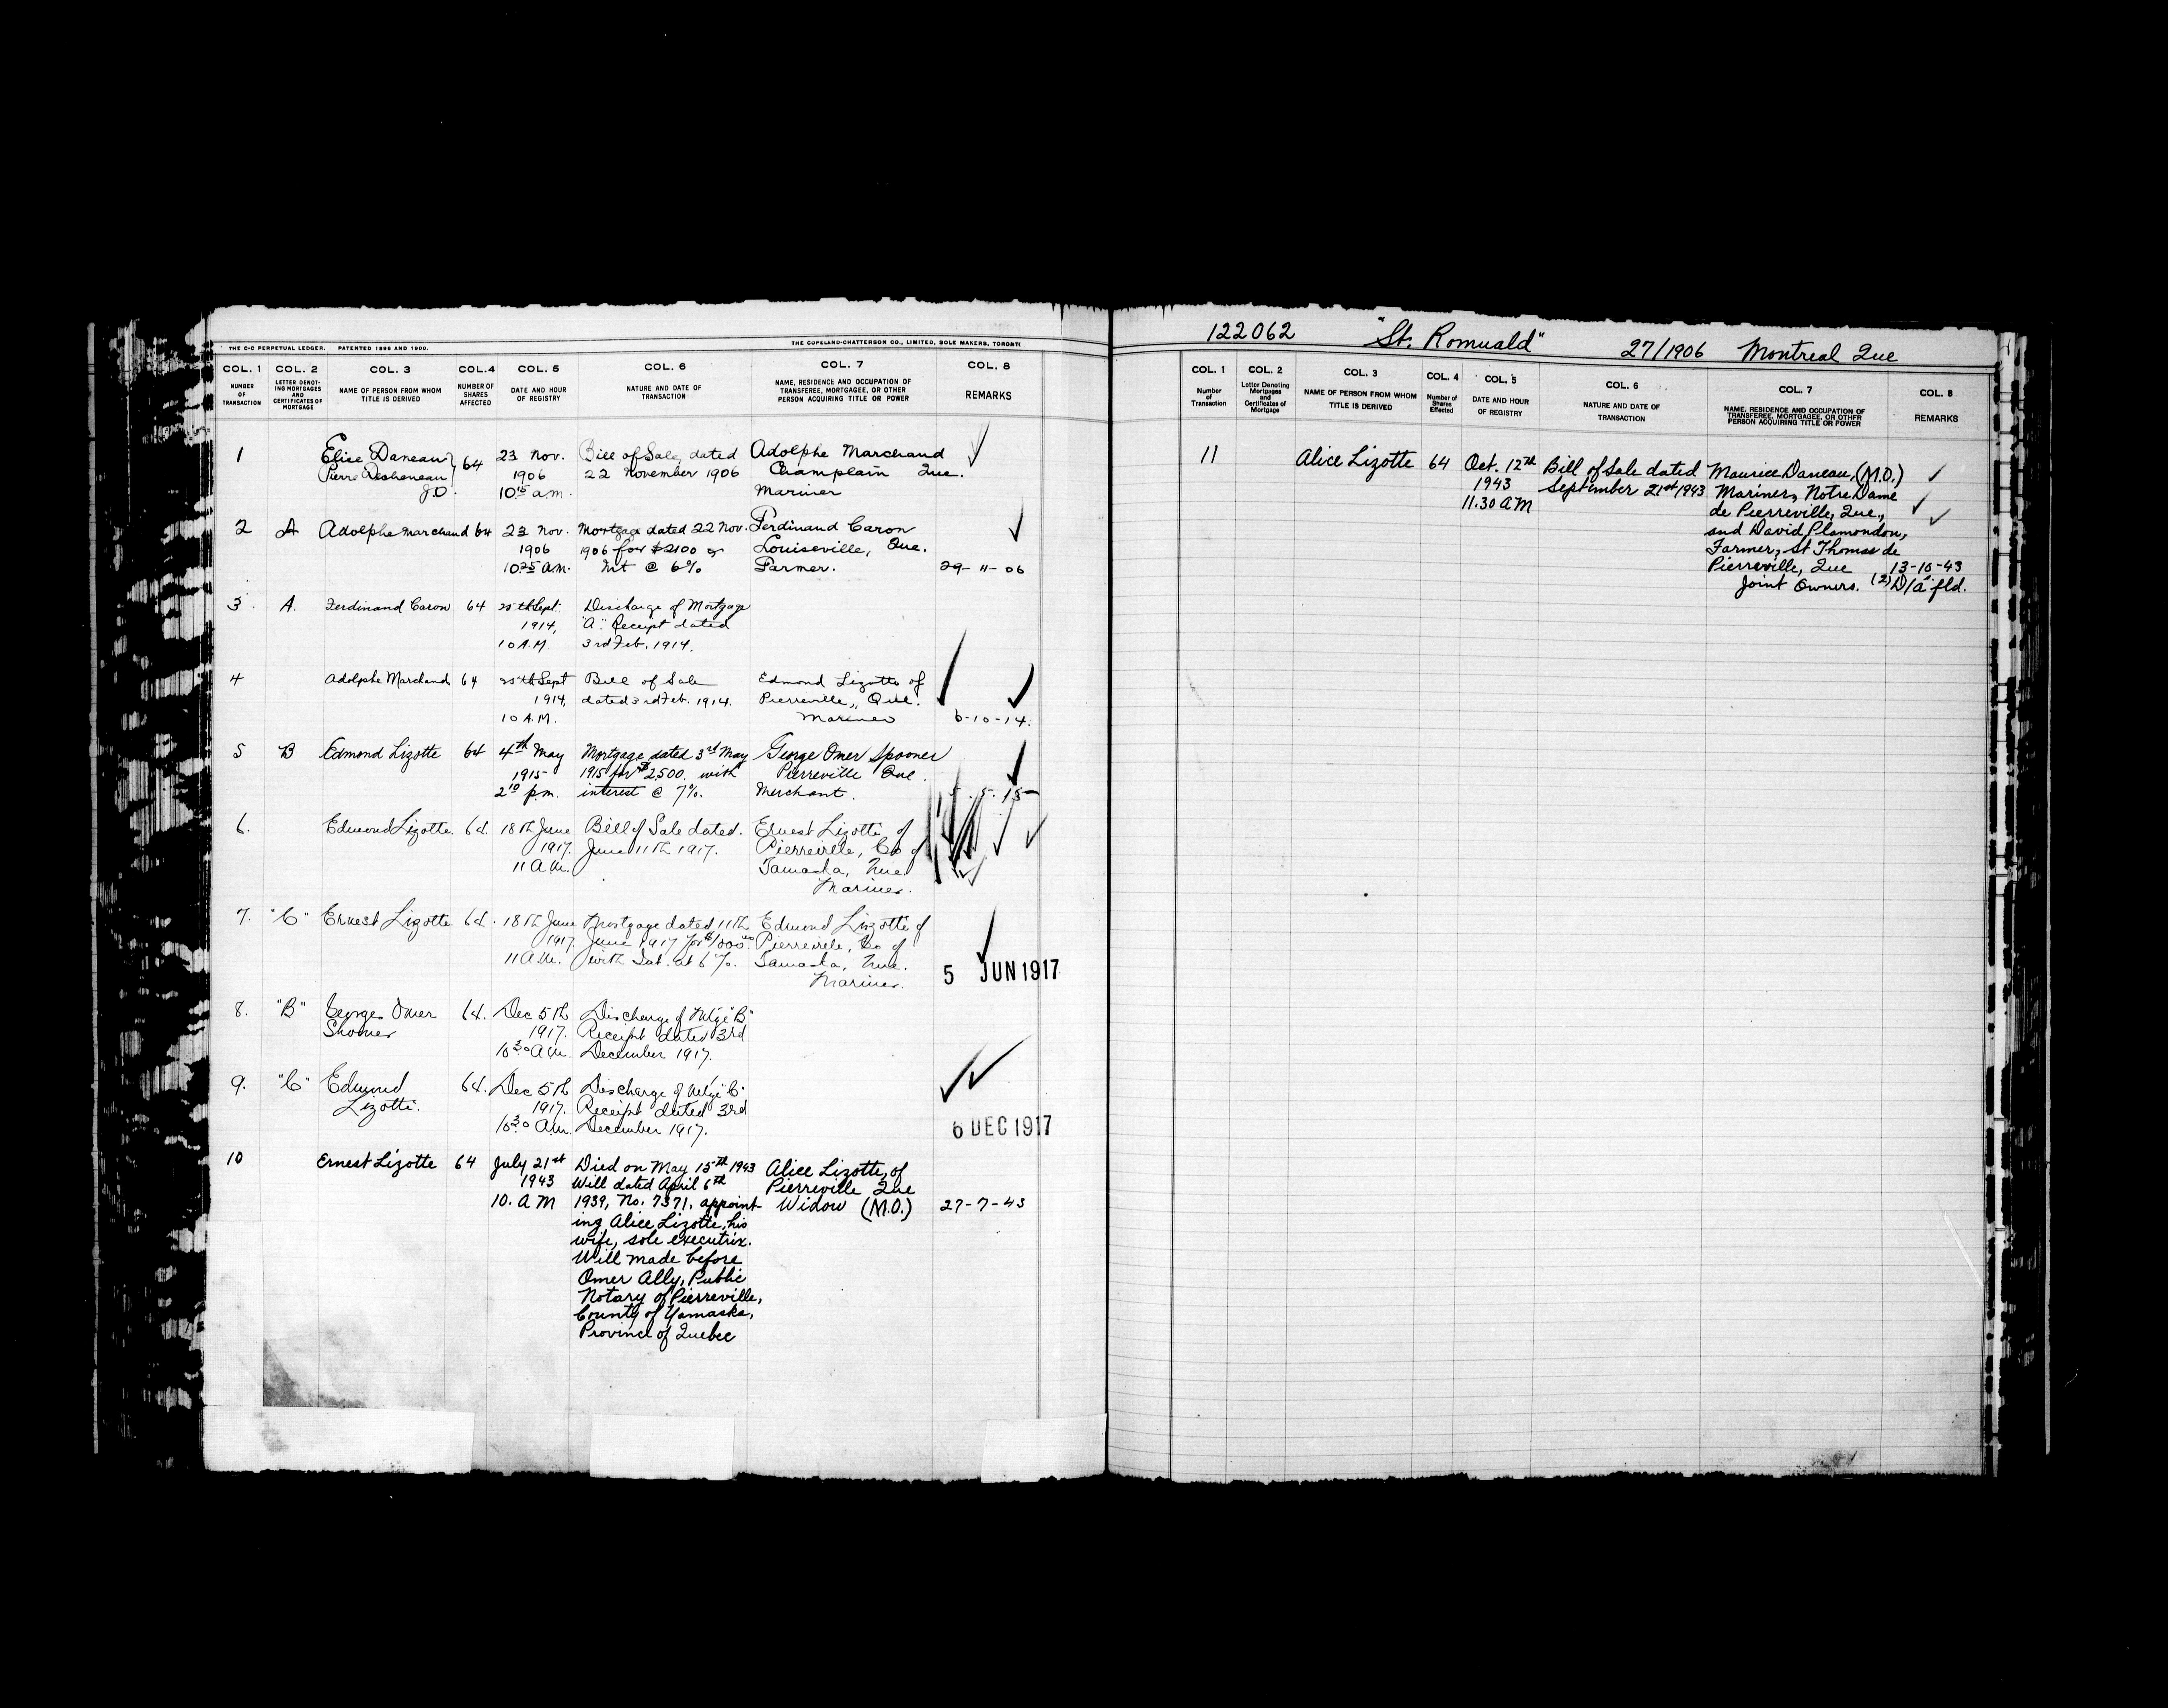 THE C-C PERPETUAL LEDGER. PATENTED 1896 AND 1900.
THE COPELAND-CHATTERSON CO., LIMITED, SOLE MAKERS, TORONTO
COL. 1 COL. 2 COL. 3 COL. 4 COL. 5 COL. 6 COL. 7 COL. 8
NUMBER OF TRANSACTION
LETTER DENOTING MORTGAGES AND CERTIFICATES OF MORTGAGE
NAME OF PERSON FROM WHOM TITLE IS DERIVED
NUMBER OF SHARES AFFECTED
DATE AND HOUR OF REGISTRY
NATURE AND DATE OF TRANSACTION
NAME, RESIDENCE AND OCCUPATION OF TRANSFEREE, MORTGAGEE, OR OTHER PERSON ACQUIRING TITLE OR POWER
REMARKS
1 Elise Daneau 64 23 Nov. Bill of Sale dated Adolphe Marchand
Pierre Descheneau 1906 22 November 1906 Champlain Que.
J.O. 10 15 a.m. Mariner
2 A Adolphe Marchand 64 23 Nov. Mortgage dated 22 Nov. Ferdinand Caron
1906 1906 for $2100 & Louiseville, Que.
10 25 a.m. Int @ 6% Farmer. 29-11-06
3 A. Ferdinand Caron 64 25th Sept. Discharge of Mortgage
1914, "A". Receipt dated
10 A.M. 3rd Feb. 1914.
4 Adolphe Marchand 64 25th Sept Bill of Sale Edmond Lizotte of
1914, dated 3rd Feb. 1914. Pierreville, Que.
10 A.M. Mariner 6-10-14.
5 B Edmond Lizotte 64 4th May Mortgage dated 3rd May George Omer Spooner
1915 1915 for $2,500. with Pierreville Que.
2 10 p.m. interest @ 7%. Merchant. 5. 15
6. Edmond Lizotte. 64. 18th June Bill of Sale dated. Ernest Lizotte of
1917. June 11th 1917. Pierreville, Co of
11 A.M. Yamaska, Que
Mariner.
7. "C" Ernest Lizotte. 64. 18th June Mortgage dated 11th Edmond Lizotte of
1917, June 1917 for $1000.00 Pierreville, Co of
11 A.M. with Int. at 6%. Yamaska, Que.
Mariner.
5 JUN 1917
8. "B" George Omer 64. Dec 5th Discharge of Mtge "B"
Spooner 1917. Receipt dated 3rd
10 30 A.M. December 1917.
9. "C" Edmond 64. Dec 5th Discharge of Mtge "C"
Lizotte. 1917. Receipt dated 3rd
10 30 A.M. December 1917.
6 DEC 1917
10 Ernest Lizotte 64 July 21st Died on May 15th 1943 Alice Lizotte, of
1943 Will dated April 6th Pierreville Que
10. A M 1939, No. 7371, appoint- Widow (M.O.) 27-7-43
ing Alice Lizotte, his
wife, sole executrix.
Will made before
Omer Ally, Public
Notary of Pierreville,
County of Yamaska,
Province of Quebec
122062 "St. Romuald" 27/1906 Montreal Que
COL. 1 COL. 2 COL. 3 COL. 4 COL. 5 COL. 6 COL. 7 COL. 8
Number of Transaction
Letter Denoting Mortgages and Certificates of Mortgage
NAME OF PERSON FROM WHOM TITLE IS DERIVED
Number of Shares Effected
DATE AND HOUR OF REGISTRY
NATURE AND DATE OF TRANSACTION
NAME, RESIDENCE AND OCCUPATION OF TRANSFEREE, MORTGAGEE, OR OTHER PERSON ACQUIRING TITLE OR POWER
REMARKS
11 Alice Lizotte 64 Oct. 12th Bill of Sale dated Maurice Daneau, (M.O.)
1943 September 21st 1943 Mariner, Notre Dame
11.30 A M de Pierreville, Que.,
and David Plamondon,
Farmer, St Thomas de
Pierreville, Que 13-10-43
Joint Owners. (2) D/a fld.